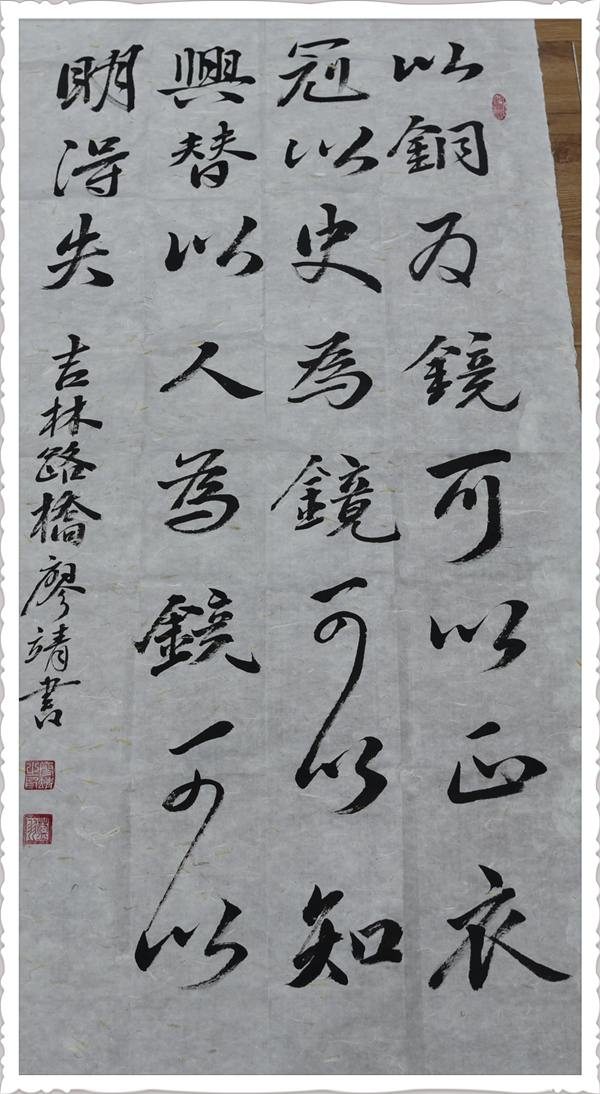 以銅为鏡可以正衣
冠以史為鏡可以知
興替以人為鏡可以
明得失
吉林路橋廖靖書